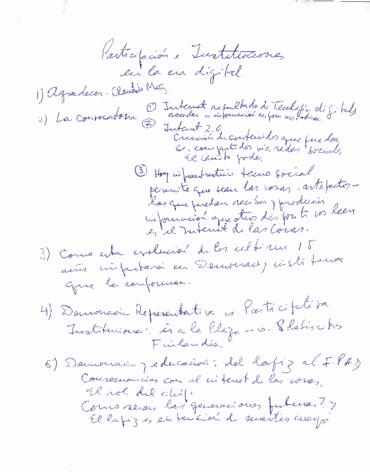 Participación e Instituciones
en la era digital.
1) Agradecer. Claudio
2) La Convocatoria
① Internet resultado de Tecnología digitales
acceder a información
② Internet 2.0
Creación de contenidos que puedan
ser compartidos via redes sociales
El cuarto poder
③ Hoy infraestructura tecno social
permite que sean las cosas. artefactos
las que puedan recibir y producir
información que otros dispositivos leen
es el Internet de las Cosas.
3) Como esta evolución de los ultimos 15
años impactará en Democracia y instituciones
que la conforman.
4) Democracia Representativa vs. Participativa
Instituciones: ir a la Plaza - o. Plebiscitos
Finlandia.
5) Democracia y educación: del lapiz al I-PAD
Consecuencias con el internet de las cosas.
El rol del chip.
Como seran las generaciones futuras? >
El lapiz es extensión de nuestro cuerpo